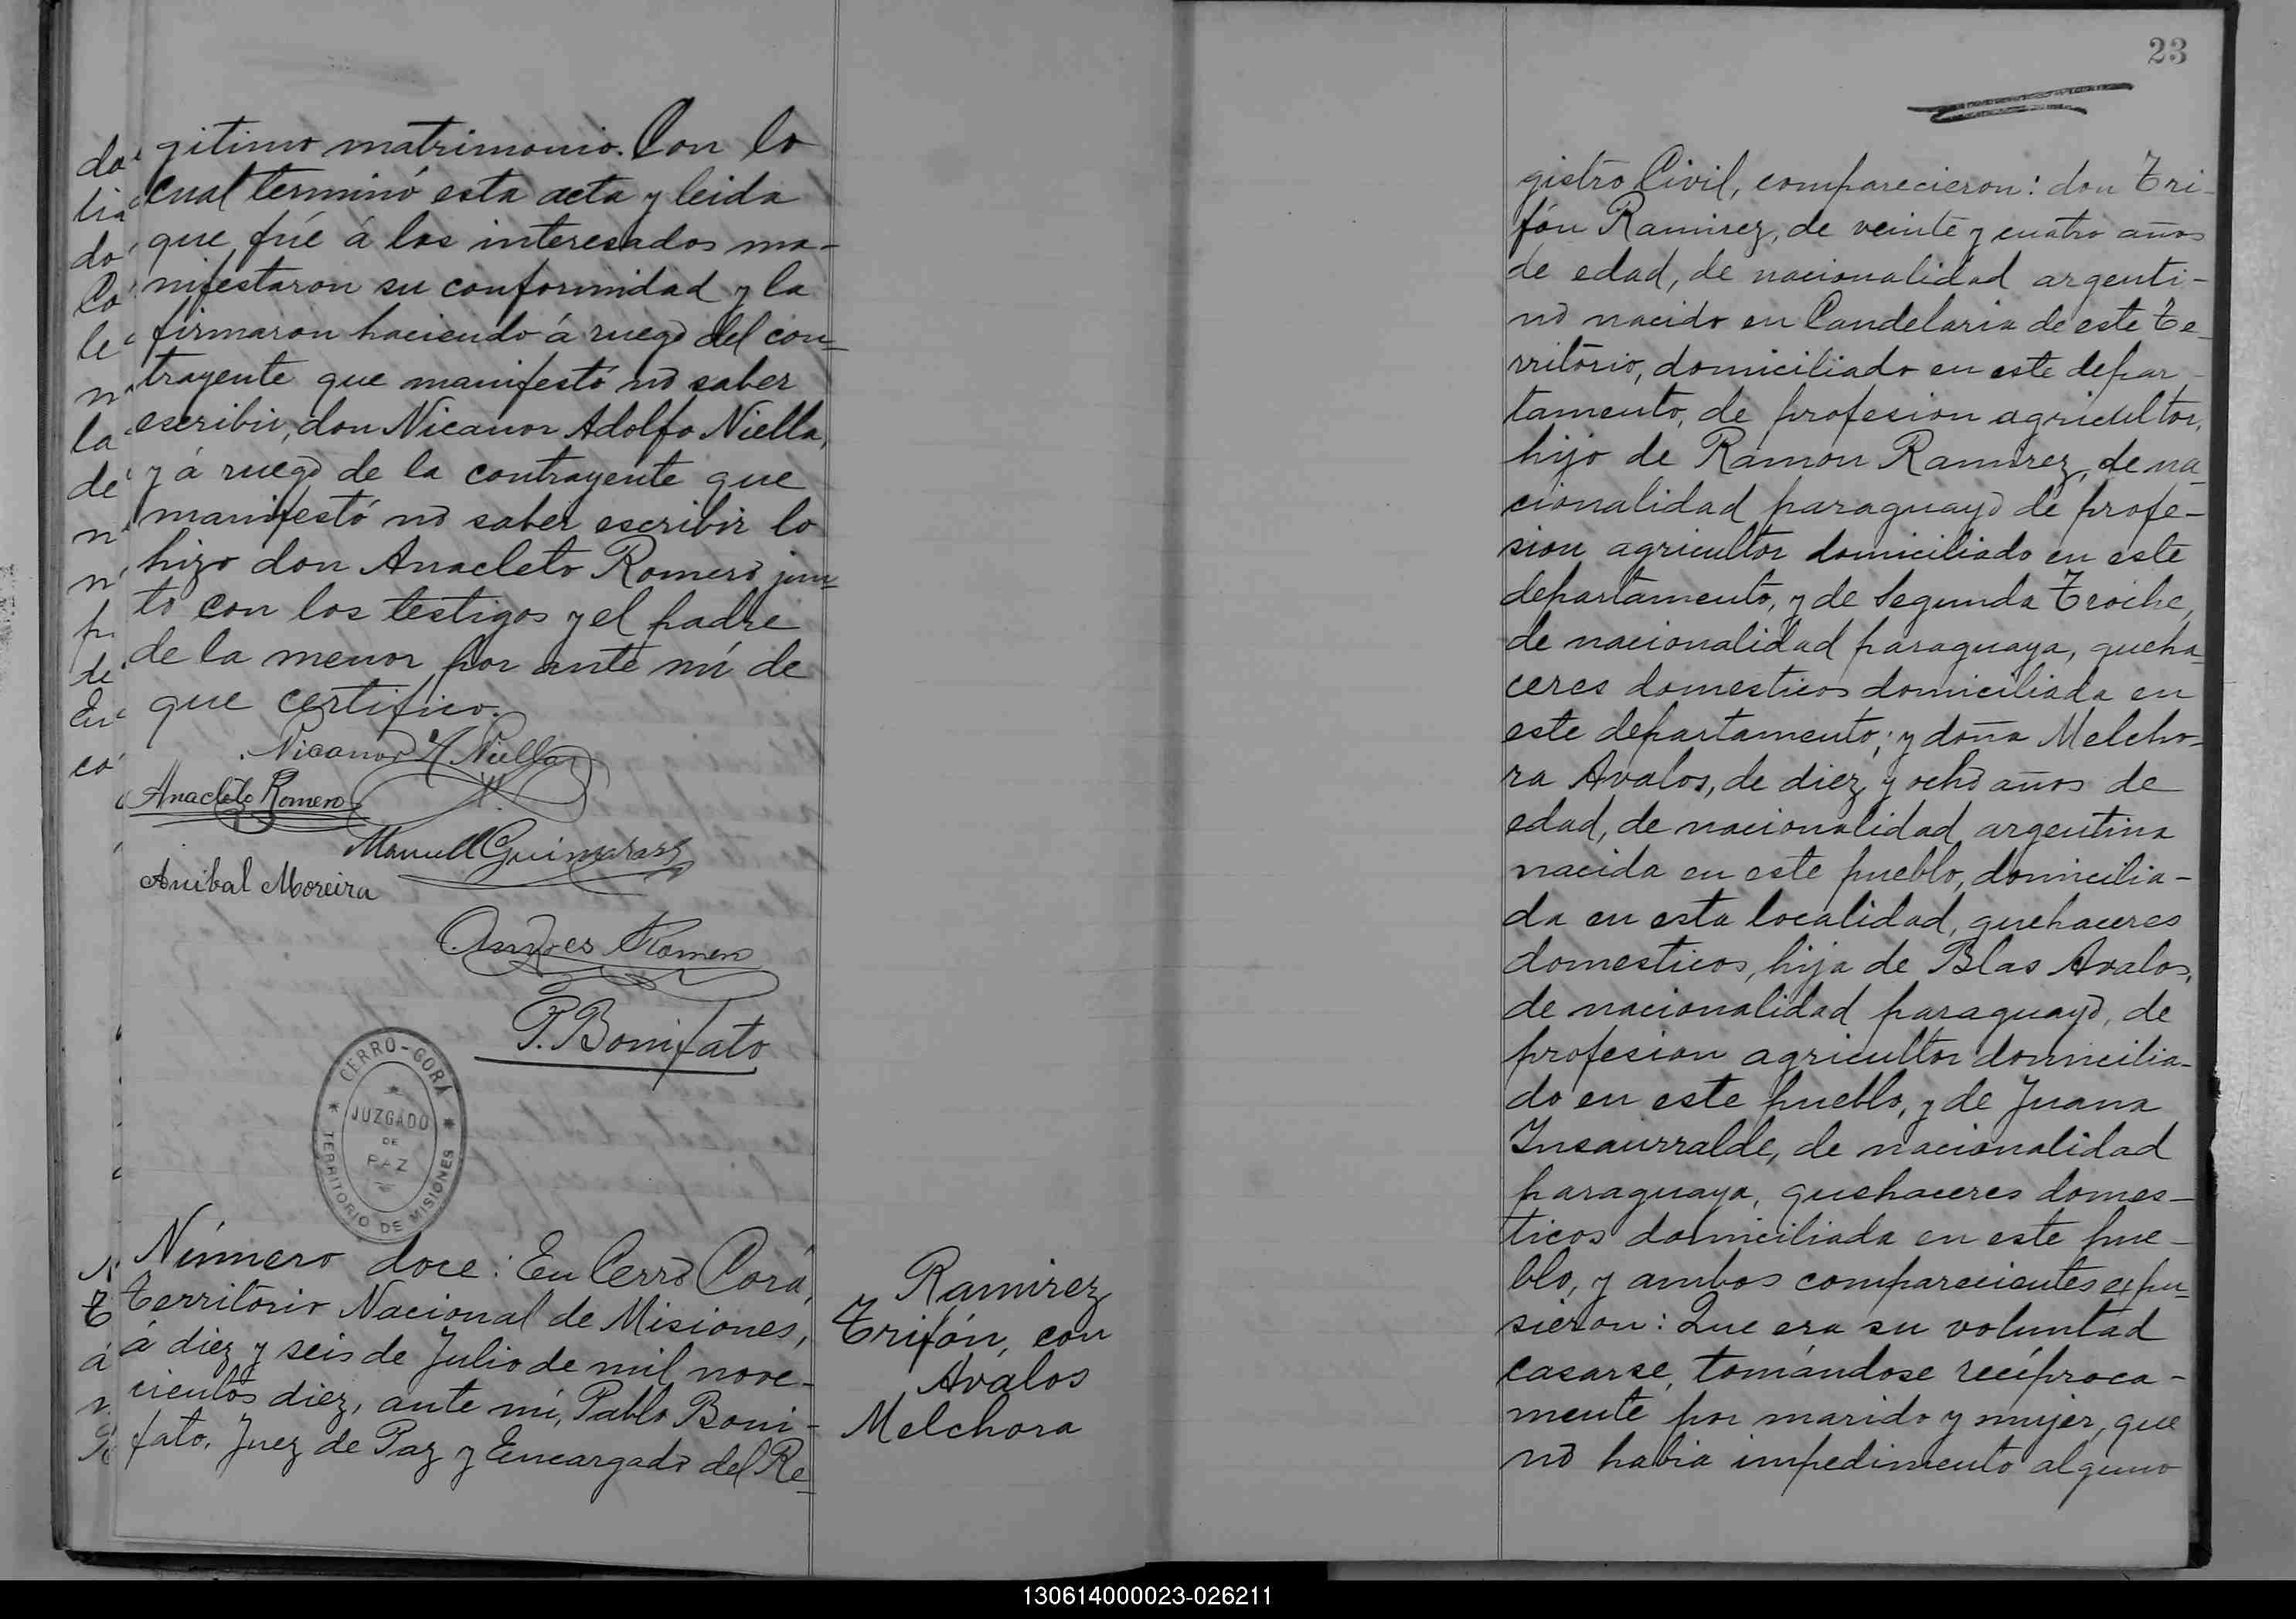 gitimo matrimonio. Con lo
cual terminó esta acta y leida
que fué á los interesados ma-
nifestaron su conformidad y la
firmaron haciendo á ruego del con-
trayente que manifestó no saber
escribir, don Nicanor Adolfo Niella,
y á ruego de la contrayente que
manifestó no saber escribir lo
hizo don Anacleto Romero jun-
to con los testigos y el padre
de la menor por ante mí de
que certifico.
Nicanor A Niella
Anacleto Romero
Manuel Guimaraes
Anibal Moreira
Andres Romero
P. Bonifato
CERRO-CORÁ
JUZGADO
DE
PAZ
TERRITORIO DE MISIONES
Número doce: En Cerro Corá,
Territorio Nacional de Misiones,
á diez y seis de Julio de mil nove-
cientos diez, ante mí, Pablo Boni-
fato, Juez de Paz y Encargado del Re-
Ramirez
Trifón, con
Avalos
Melchora
23
gistro Civil, comparecieron: don Tri-
fón Ramirez, de veinte y cuatro años
de edad, de nacionalidad argenti-
no nacido en Candelaria de este Te-
rritorio, domiciliado en este depar-
tamento, de profesion agricultor,
hijo de Ramon Ramirez, de na-
cionalidad paraguayo de profe-
sion agricultor domiciliado en este
departamento, y de Segunda Troche,
de nacionalidad paraguaya, queha-
ceres domesticos domiciliada en
este departamento; y doña Melcho-
ra Avalos, de diez y ocho años de
edad, de nacionalidad argentina
nacida en este pueblo, domicilia-
da en esta localidad, quehaceres
domesticos, hija de Blas Avalos,
de nacionalidad paraguayo, de
profesion agricultor domicilia-
do en este pueblo, y de Juana
Insaurralde, de nacionalidad
paraguaya, quehaceres domes-
ticos domiciliada en este pue-
blo, y ambos comparecientes expu-
sieron: Que era su voluntad
casarse, tomándose recíproca-
mente por marido y mujer, que
no habia impedimento alguno
130614000023-026211